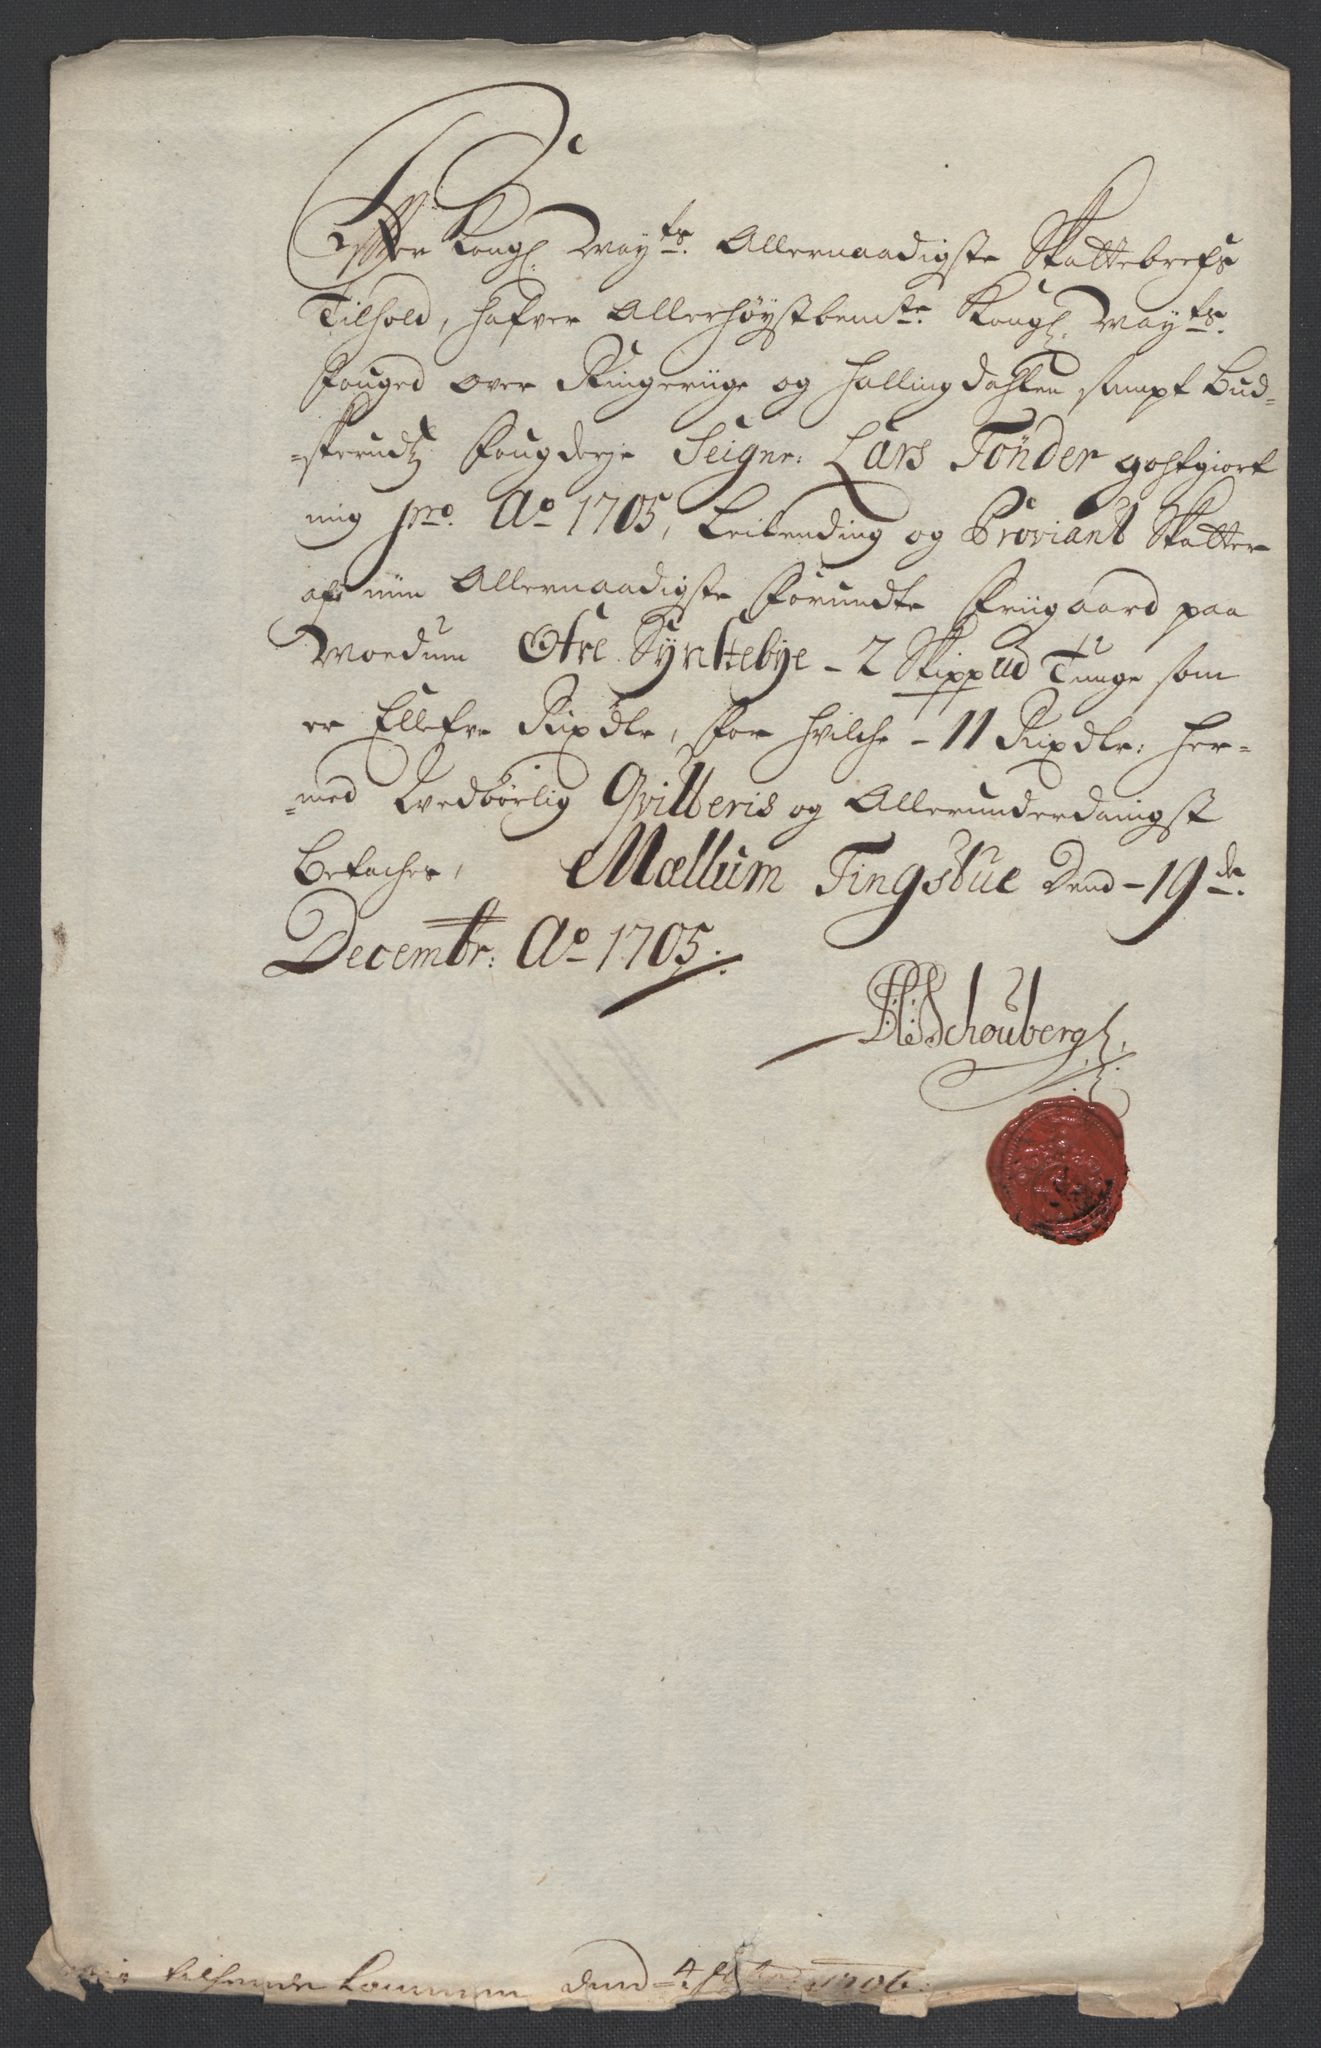 Effter Kongl: May:ts Allernaadigste Skattebrefs
Tilhold, hafver Allerhøystbem:te Kongl: May:ts
Fouged over Ringeriige og Hallingdahlen sampt Bud=
=skerudtz Fougderje Seignr: Lars Tönder godtgiort
mig pro Ao 1705, Leilending og Proviant Skatter
af min Allernaadigste Forundte Friigaard paa
Moedum Øfre Synstebye - 2 Skippud Tunge som
er Ellefve Rixdlr, for hvilche - 11 Rixdlr: her=
=med Vedbörlig Qvitteris og Allerunderdanigst
Betaches, Mællum Tingstue Dend - 19de
Decembr: Ao 1705.
HSchouberg
tilhende kommen dend 4 1706.